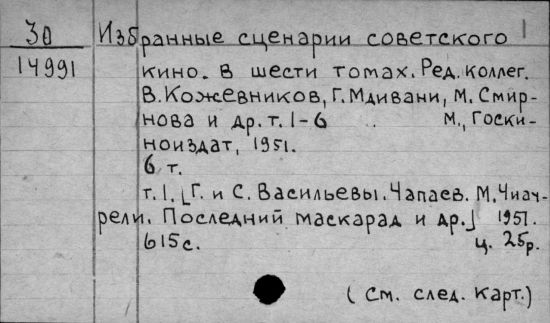 30
14991
Избранные сценарии советского
кино. В шести томах. Ред. коллег.
В. Кожевников, Г. Мдивани, М. Смир-
нова и др. т. 1-6 М., Госки-
ноиздат, 1951.
6 т.
т. 1. [Г. и С. Васильевы. Чапаев. М. Чиау-
рели. Последний маскарад и др.] 1951.
615с. ц. 25р.
(См. след. карт.)